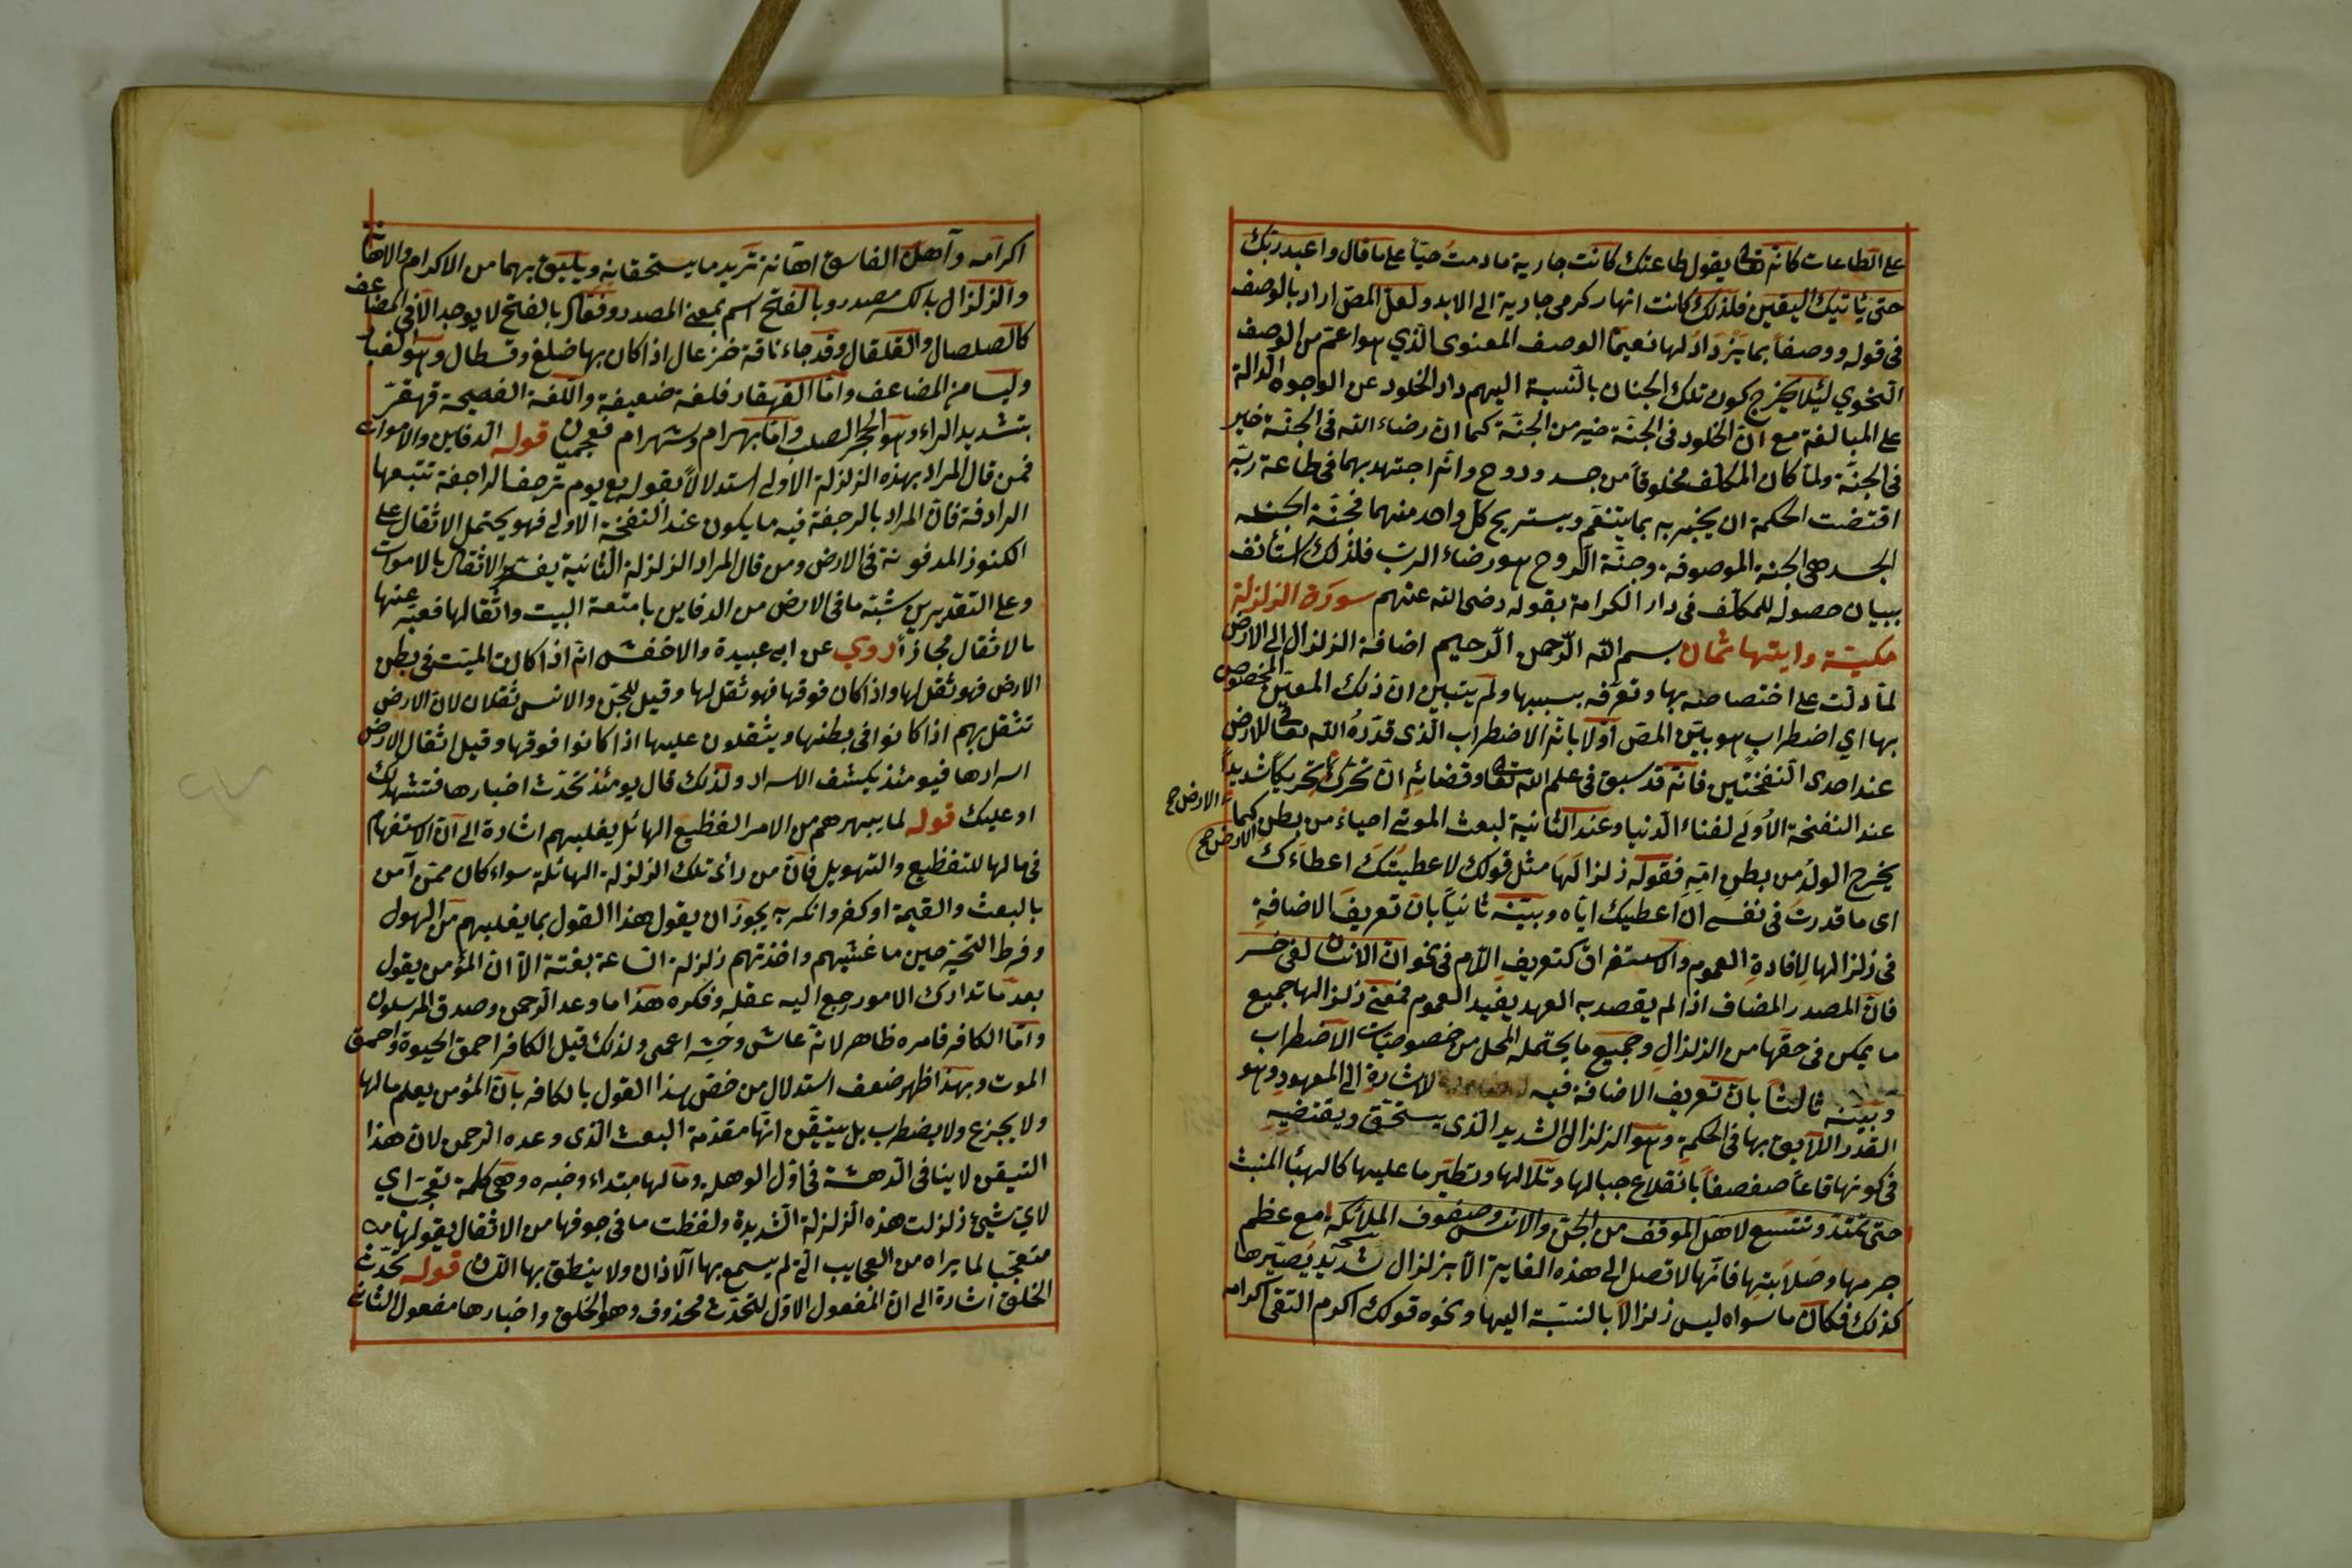 على الطاعات كانه تعالى يقول طاعتك كانت جارية ما دمت حيّا على ما قال واعبد ربّك
حتى يأتيك اليقين فلذلك كانت انهار كرمى جارية الى الابد ولعلّ المصّ اراد بالوصف
فى قوله ووصفاً بما يَزْدَادُ لها نعيمًا الوصف المعنوى الّذي هو اعمّ من الوصف
النّحوي لئلا يخرج كون تلك الجنان بالنّسبة اليهم دار الخلود عن الوجوه الدّالة
على المبالغة مع انّ الخلود فى الجنّة خير من الجنّة كما ان رضاء الله فى الجنّة خير
فى الجنّة ولمّا كان المكلّف مخلوقاً من جسد وروح وانّه اجتهد بهما فى طاعة ربّه
اقتضت الحكمة ان يجزيه بما يتنعّم ويستريح كلّ واحد منهما فجنّة الجسد
الجسد هى الجنة الموصوفة وجنّة الروح هو رضاء الربّ فلذلك استأنف
ببيان حصوله للمكلّف فى دار الكرامة بقوله رضى الله عنهم سورة الزلزلة
مكيّة وايتها ثمان بسم الله الرّحمن الرّحيم اضافة الزلزال الى الارض
لمّا دلّت على اختصاصه بها وتعرّفه بسببها ولم يتبيّن انّ ذلك المعيّن المخصوص
بها اي اضطراب هو بيّن المصّ اوّلا بانّه الاضطراب الّذى قدّره الله تعالى للارض
عند احدى النّفختين فانّه قد سبق فى علم الله تعالى وقضائه انْ تحرّك تحريكاً شديداً
عند النفخة الاُولَى لفناء الدّنيا وعند الثّانية لبعث الموتى احياءً من بطن الارض كما
الارض صح
يخرج الولدُ من بطن امّه فقوله زلزالَهَا مثل قولك لاعطيتُنّك اعطاءَك
اى ما قدرت فى نفسى ان اعطيك ايّاه وبيّنه ثانياً بان تعريف الاضافةِ
فى زلزالها لافادةِ العموم والاستغراق كتعريف اللّام فى نحو انّ الانسان لفى خسر
فانّ المصدر المضاف اذا لم يقصد به العهد يفيد العموم فمعنى زلزالها جميع
ما يمكن فى حقّها من الزلزال وجميع ما يحتمله المحل من خصوصيّات الاضطراب
وبيّنه ثالثاً بانّ تعريف الاضافة فيه للاشارة الى المعهود وهو
القدر اللّايق بها فى الحكمة وهو الزلزال الشديد الّذى يستحقّ ويقتضيه
فى كونها قاعاً صفصفاً بانقلاع جبالها وتلالها وتطيّر ما عليها كالهبا المنبث
حتى تمتدّ وتتّسع لاهل الموقف من الجنّ والانس وصفوف الملائكة مع عظم
جرمها وصلابتها فانّها لا تصل الى هذه الغاية الّا بزلزال شديد يُصيّرها
كذلك فكان ما سواه ليس زلزالاً بالنسبة اليها ونحوه قولك اكرم التقى اكرامه
اكرامه وآهن الفاسق اهانة تريد ما يستحقانه ويليق بهما من الاكرام والاهانة
والزلزال بالكسر مصدر وبالفتح اسم بمعنى المصدر وفعلال بالفتح لا يوجد الّا فى المضاعف
كالصلصال والقلقال وقد جاء ناقة خزعال اذا كان بها ضلع وقسطال وهو الغبار
وليسا من المضاعف وامّا القهقار فلغة ضعيفة واللّغة الفصيحة قهقرّ
بتشديد الراء وهو الحجر الصلب وامّا بهرام وشهرام فعجميّان قوله الدفاين والاموات
فمن قال المراد بهذه الزلزلة الاولى استدلالاً بقوله تع يوم ترجف الراجفة تتبعها
الرادفة فانّ المراد بالرجفة فيه ما يكون عند النفخة الاولى فهو يحتمل الاثقال على
الكنوز المدفونة فى الارض ومن قال المراد الزلزلة الثّانية يفسّر الاثقال بالاموات
وعلى التقديرين شبّه ما فى الارض من الدفاين بامتعة البيت واثقالها فعبّر عنها
بالاثقال مجازاً روي عن ابى عبيدة والاخفش انّه اذا كان الميّت فى بطن
الارض فهو ثقل لها واذا كان فوقها فهو ثقل لها وقيل للجنّ والانس ثقلان لان الارض
تثقل بهم اذا كانوا فى بطنها ويثقلون عليها اذا كانوا فوقها وقيل اثقال الارض
اسرارها فيومئذ يكشف الاسرار ولذلك قال يومئذ تحدّث اخبارها فتشهد لك
او عليك قوله لما يبهرهم من الامر الفظيع الهائل يغلبهم اشارة الى انّ الاستفهام
فى مالها للتفظيع والتهويل فانّ من راى تلك الزلزلة الهائلة سواء كان ممّن آمن
بالبعث والقيمة او كفر وانكر به يجوز ان يقول هذا القول بما يغلبهم من الهول
وفرط التحيّر حين ما غشيهم واخذتهم زلزلة السّاعة بغتة الّا انّ المؤمن يقول
بعد ما تدارك الامور رجع اليه عقله وفكره هذا ما وعد الرّحمن وصدق المرسلون
وامّا الكافر فامره ظاهر لانّه عاش وحشر اعمى ولذلك قيل الكافر احمق الحيوة واحمق
الموت وبهذا ظهر ضعف استدلال من خصّ هذا القول بالكافر بانّ المؤمن يعلم مالها
ولا يجزع ولا يضطرب بل يتيقّن انّها مقدّمة البعث الّذى وعده الرّحمن لان هذا
التيقن لا ينافى الدّهشة فى اوّل الوهلة ومالها مبتداء وخبره وهى كلمة تعجّب اي
لايّ شيئ زلزلت هذه الزلزلة الشّديدة ولفظت ما فى جوفها من الاثقال يقولها من
متعجّبا لما يراه من العجايب الّتى لم يسمع بها الآذان ولا ينطق بها اللّسان قوله تحدّث
الخلق اشارة الى انّ المفعول الاوّل لتحدّث محذوف وهو الخلق واخبارها مفعول الثانى